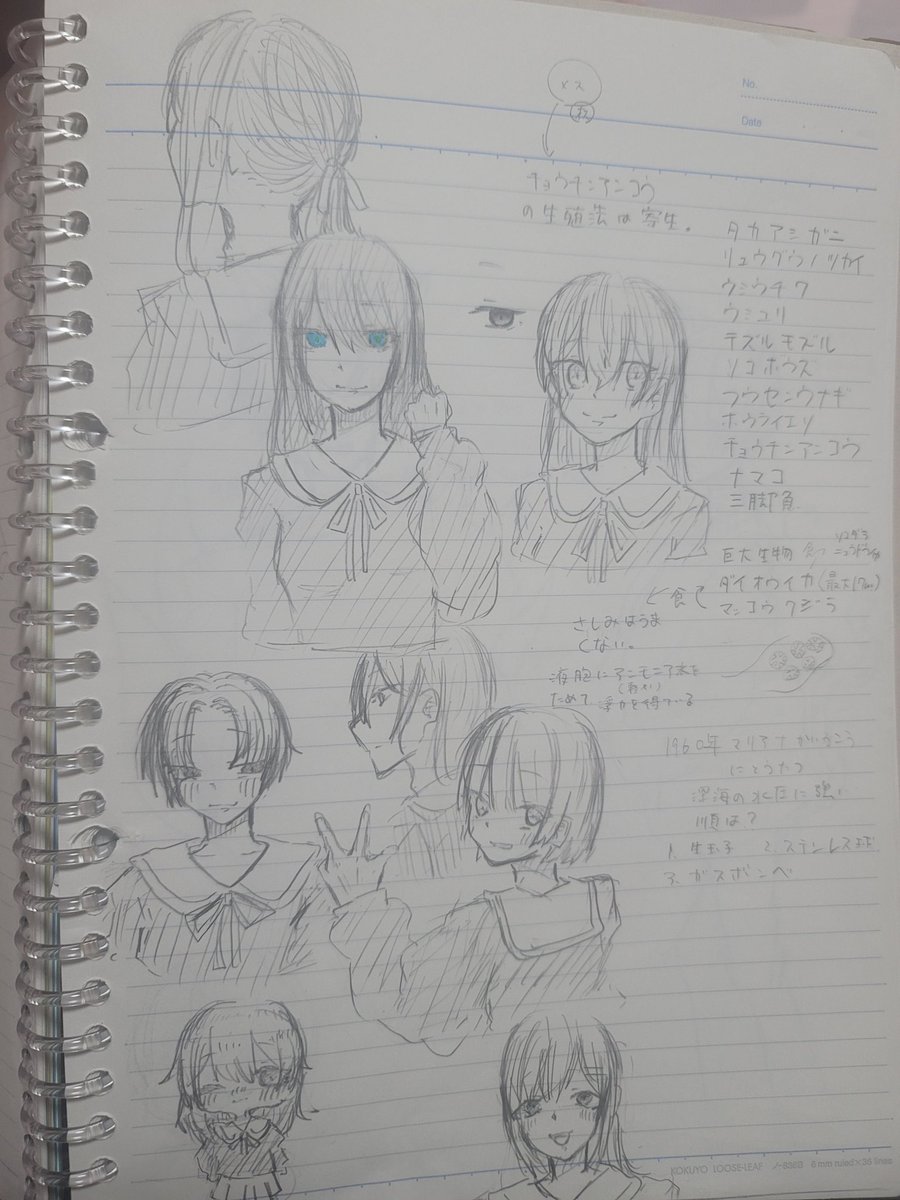 No.
Date
メス
オス
チョウチンアンコウ
の生殖法は寄生。
タカアシガニ
リュウグウノツカイ
ウミウチワ
ウミユリ
テズルモズル
ソコボウズ
フウセンウナギ
ホウライエソ
チョウチンアンコウ
ナマコ
三脚魚
巨大生物 食う
ダイオウイカ(最大17m)
マッコウクジラ
食べ
さしみはうま
くない。
液胞にアンモニア水を
ためて浮力を得ている
1960年 マリアナかいこう
にとうたつ
深海の水圧に強い
順は?
1. 生玉子 2. ステンレス球
3. ガスボンベ
KOKUYO LOOSE-LEAF ノ-836B 6 mm ruled×36 lines